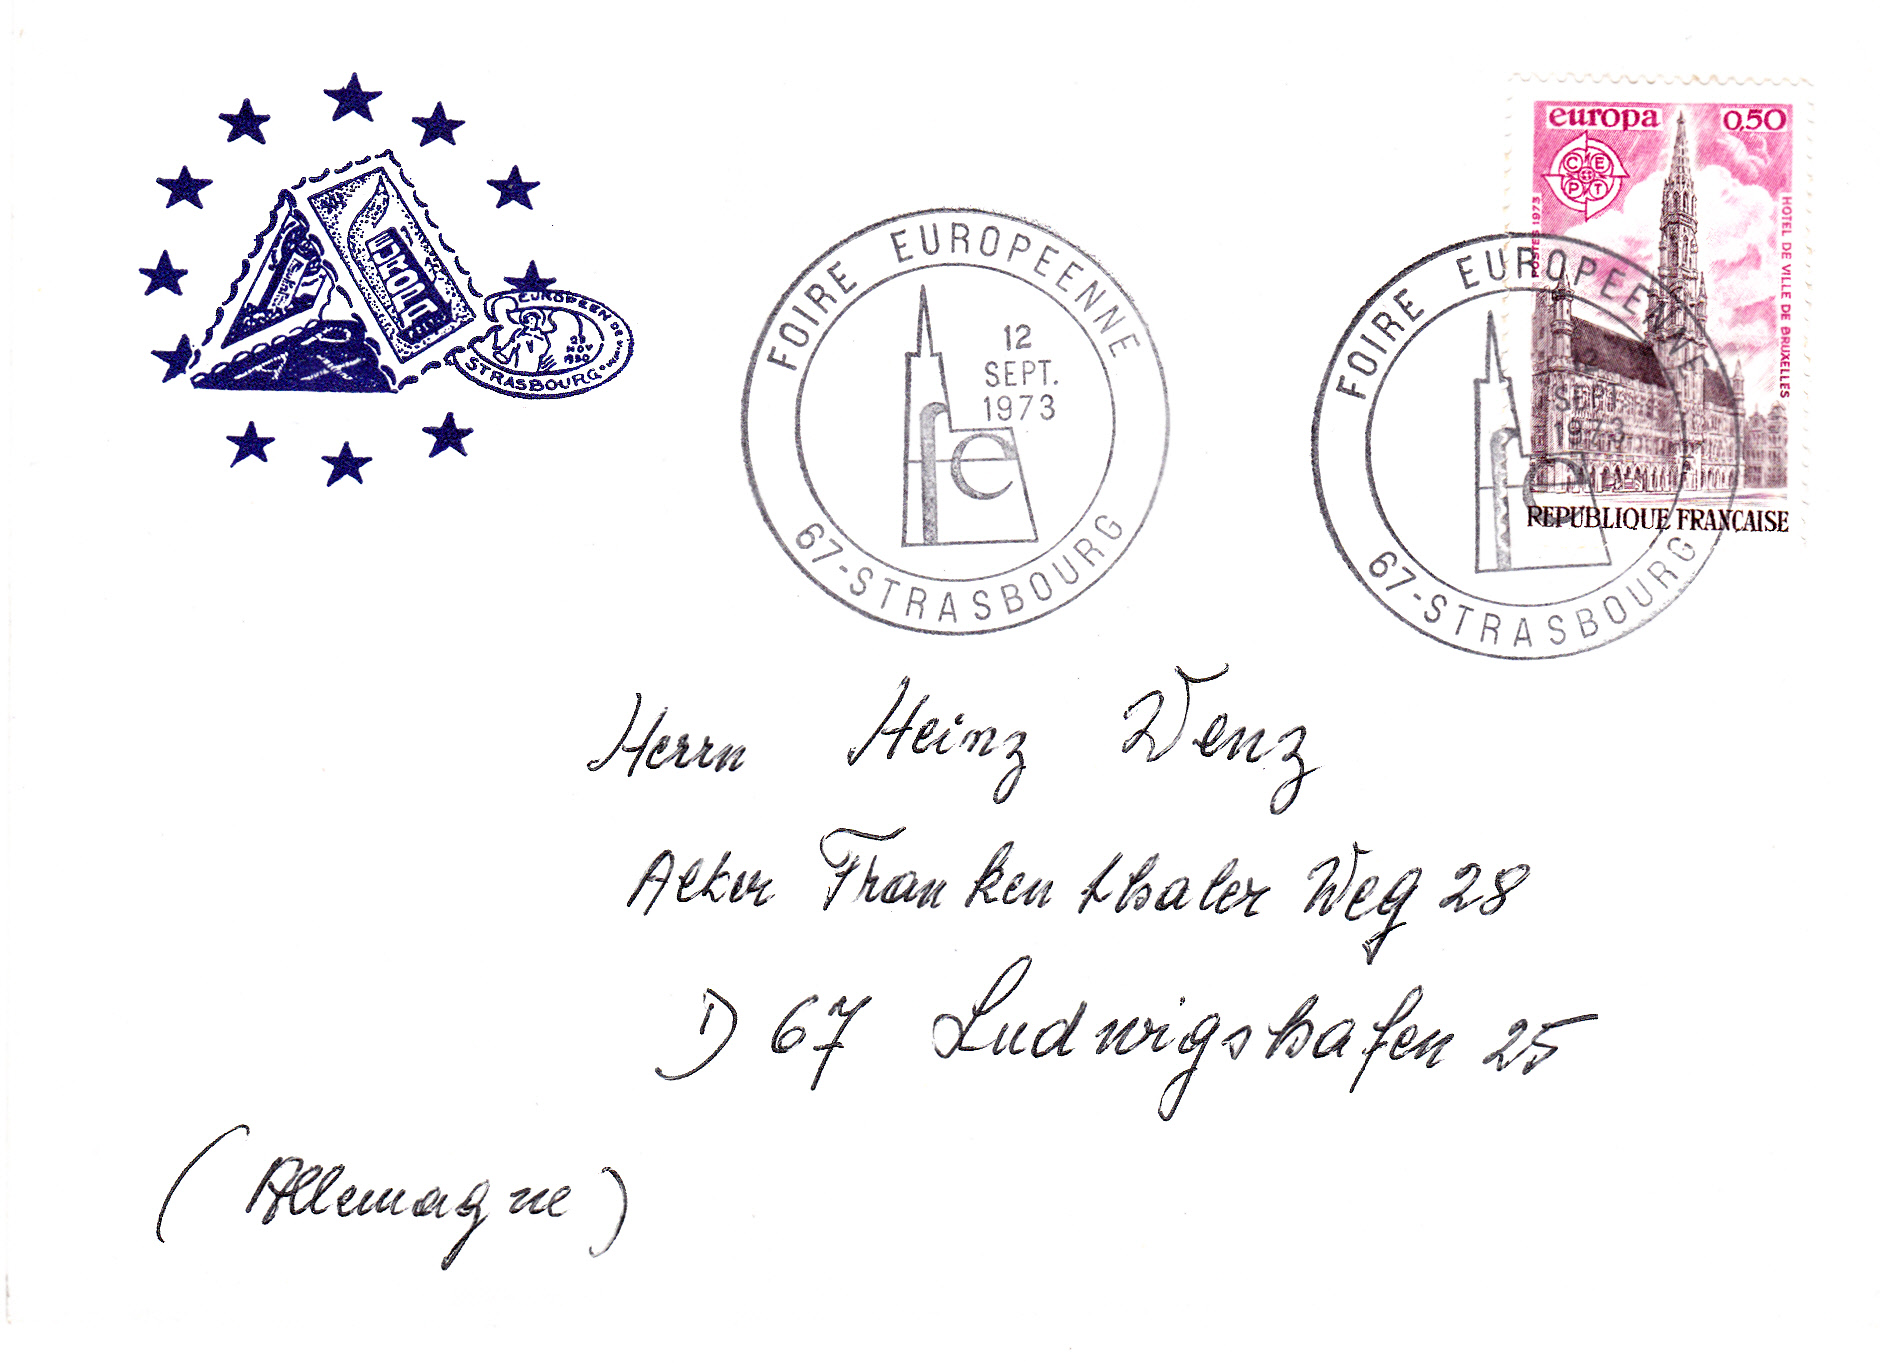 europa 0,50
C E P T
POSTES 1973
HOTEL DE VILLE DE BRUXELLES
REPUBLIQUE FRANÇAISE
EUROPEEN DE
25
NOV
1950
STRASBOURG
EUROPA
FOIRE EUROPEENNE
12
SEPT.
1973
fe
67-STRASBOURG
FOIRE EUROPEENNE
12
SEPT.
1973
fe
67-STRASBOURG
Herrn Heinz Wenz
Alter Frankenthaler Weg 28
D 67 Ludwigshafen 25
(Allemagne)